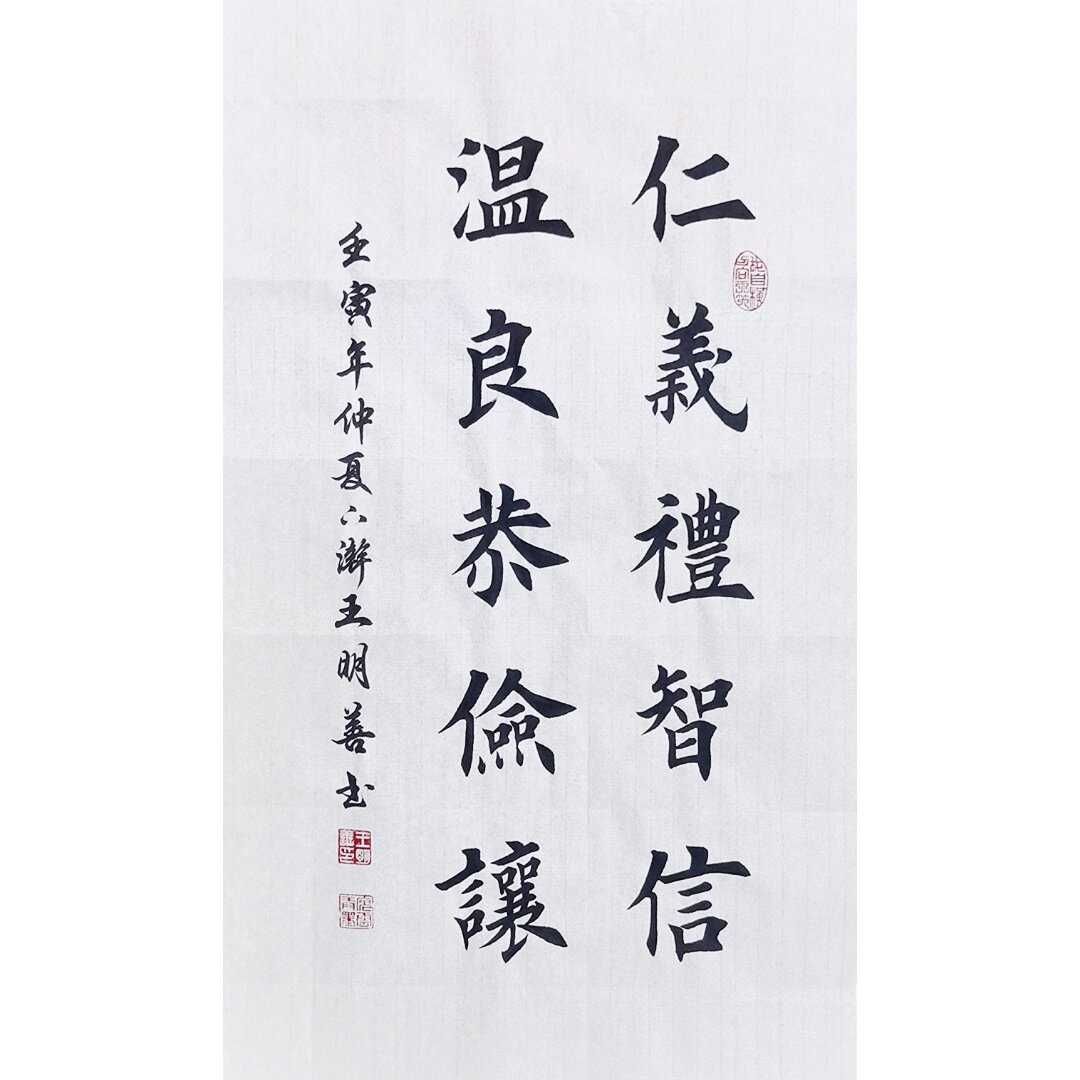 仁義禮智信
温良恭儉讓
壬寅年仲夏六澣王明善书